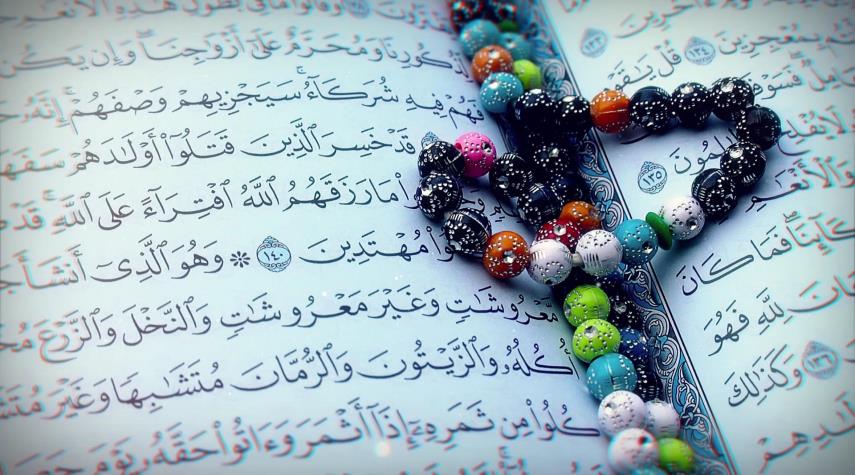 ءَاخَرِينَ ١٣٣
بِمُعْجِزِينَ ١٣٤ قُلْ
فَسَوْ
١٣٥
فَمَا كَانَ
لِلَّهِ فَهُوَ
١٣٦ وَكَذَٰلِكَ
وَقَالُوا۟ مَا فِى بُطُونِ هَٰذِهِ
لِّذُكُورِنَا وَمُحَرَّمٌ عَلَىٰٓ أَزْوَٰجِنَا وَإِن يَكُن
فَهُمْ فِيهِ شُرَكَآءُ سَيَجْزِيهِمْ وَصْفَهُمْ إِنَّهُۥ
قَدْ خَسِرَ ٱلَّذِينَ قَتَلُوٓا۟ أَوْلَٰدَهُمْ سَفَهًا
مَا رَزَقَهُمُ ٱللَّهُ ٱفْتِرَآءً عَلَى ٱللَّهِ قَدْ
مُهْتَدِينَ ١٤٠ ۞ وَهُوَ ٱلَّذِىٓ أَنشَأَ
مَّعْرُوشَٰتٍ وَغَيْرَ مَعْرُوشَٰتٍ وَٱلنَّخْلَ وَٱلزَّرْعَ
أُكُلُهُۥ وَٱلزَّيْتُونَ وَٱلرُّمَّانَ مُتَشَٰبِهًا وَغَيْرَ
كُلُوا۟ مِن ثَمَرِهِۦٓ إِذَآ أَثْمَرَ وَءَاتُوا۟ حَقَّهُۥ يَوْمَ